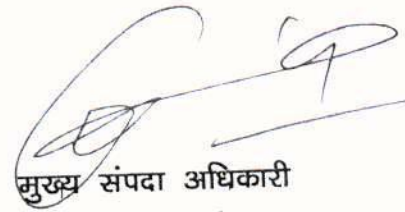 मुख्य संपदा अधिकारी